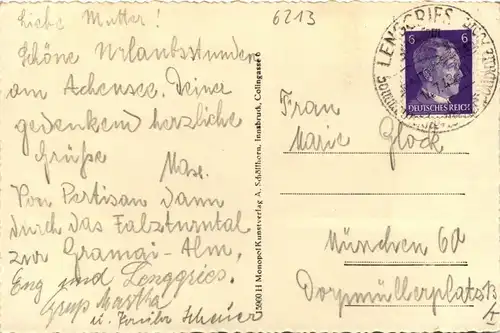 Liebe Mutter!
Schöne Urlaubsstunden
am Achensee. Deiner
gedenkend herzliche
Grüße
Max.
Von Pertisau dann
durch das Falzturntal
zur Gramai-Alm,
Eng und Lenggries.
Gruß Martha
u. Scheuer
15800 H Monopol Kunstverlag A. Schöllhorn, Innsbruck, Colingasse 6
6213
LENGGRIES
6 6
DEUTSCHES REICH
Frau
Marie Glock
München 60
Dorpmüllerplatz